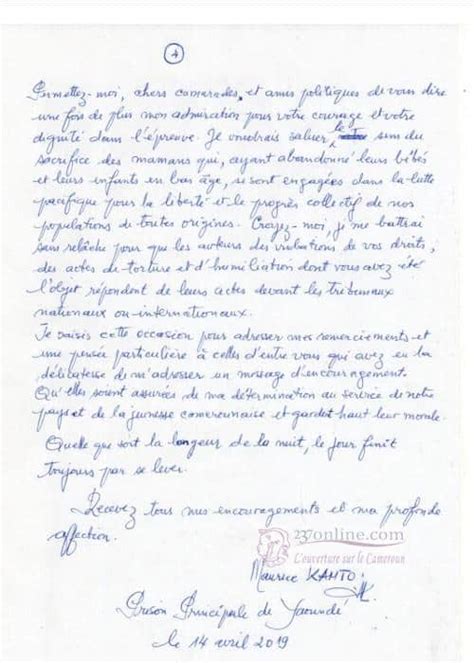 4
Permettez-moi, chers camarades, et amis politiques de vous dire
une fois de plus mon admiration pour votre courage et votre
dignité dans l'épreuve. Je voudrais saluer le sens du
sacrifice des mamans qui, ayant abandonné leurs bébés
et leurs enfants en bas âge, se sont engagées dans la lutte
pacifique pour la liberté et le progrès collectif de nos
populations de toutes origines. Croyez-moi, je me battrai
sans relâche pour que les auteurs des violations de vos droits,
des actes de torture et d'humiliation dont vous avez été
l'objet répondent de leurs actes devant les tribunaux
nationaux ou internationaux.
Je saisis cette occasion pour adresser mes remerciements et
une pensée particulière à celles d'entre vous qui avez eu la
délicatesse de m'adresser un message d'encouragement.
Qu'elles soient assurées de ma détermination au service de notre
pays et de la jeunesse camerounaise et gardent haut leur morale.
Quelle que soit la longeur de la nuit, le jour finit
toujours par se lever.
Recevez tous mes encouragements et ma profonde
affection.
237online.com
L'ouverture sur le Cameroun
Maurice KAMTO
Prison Principale de Yaoundé
le 14 avril 2019